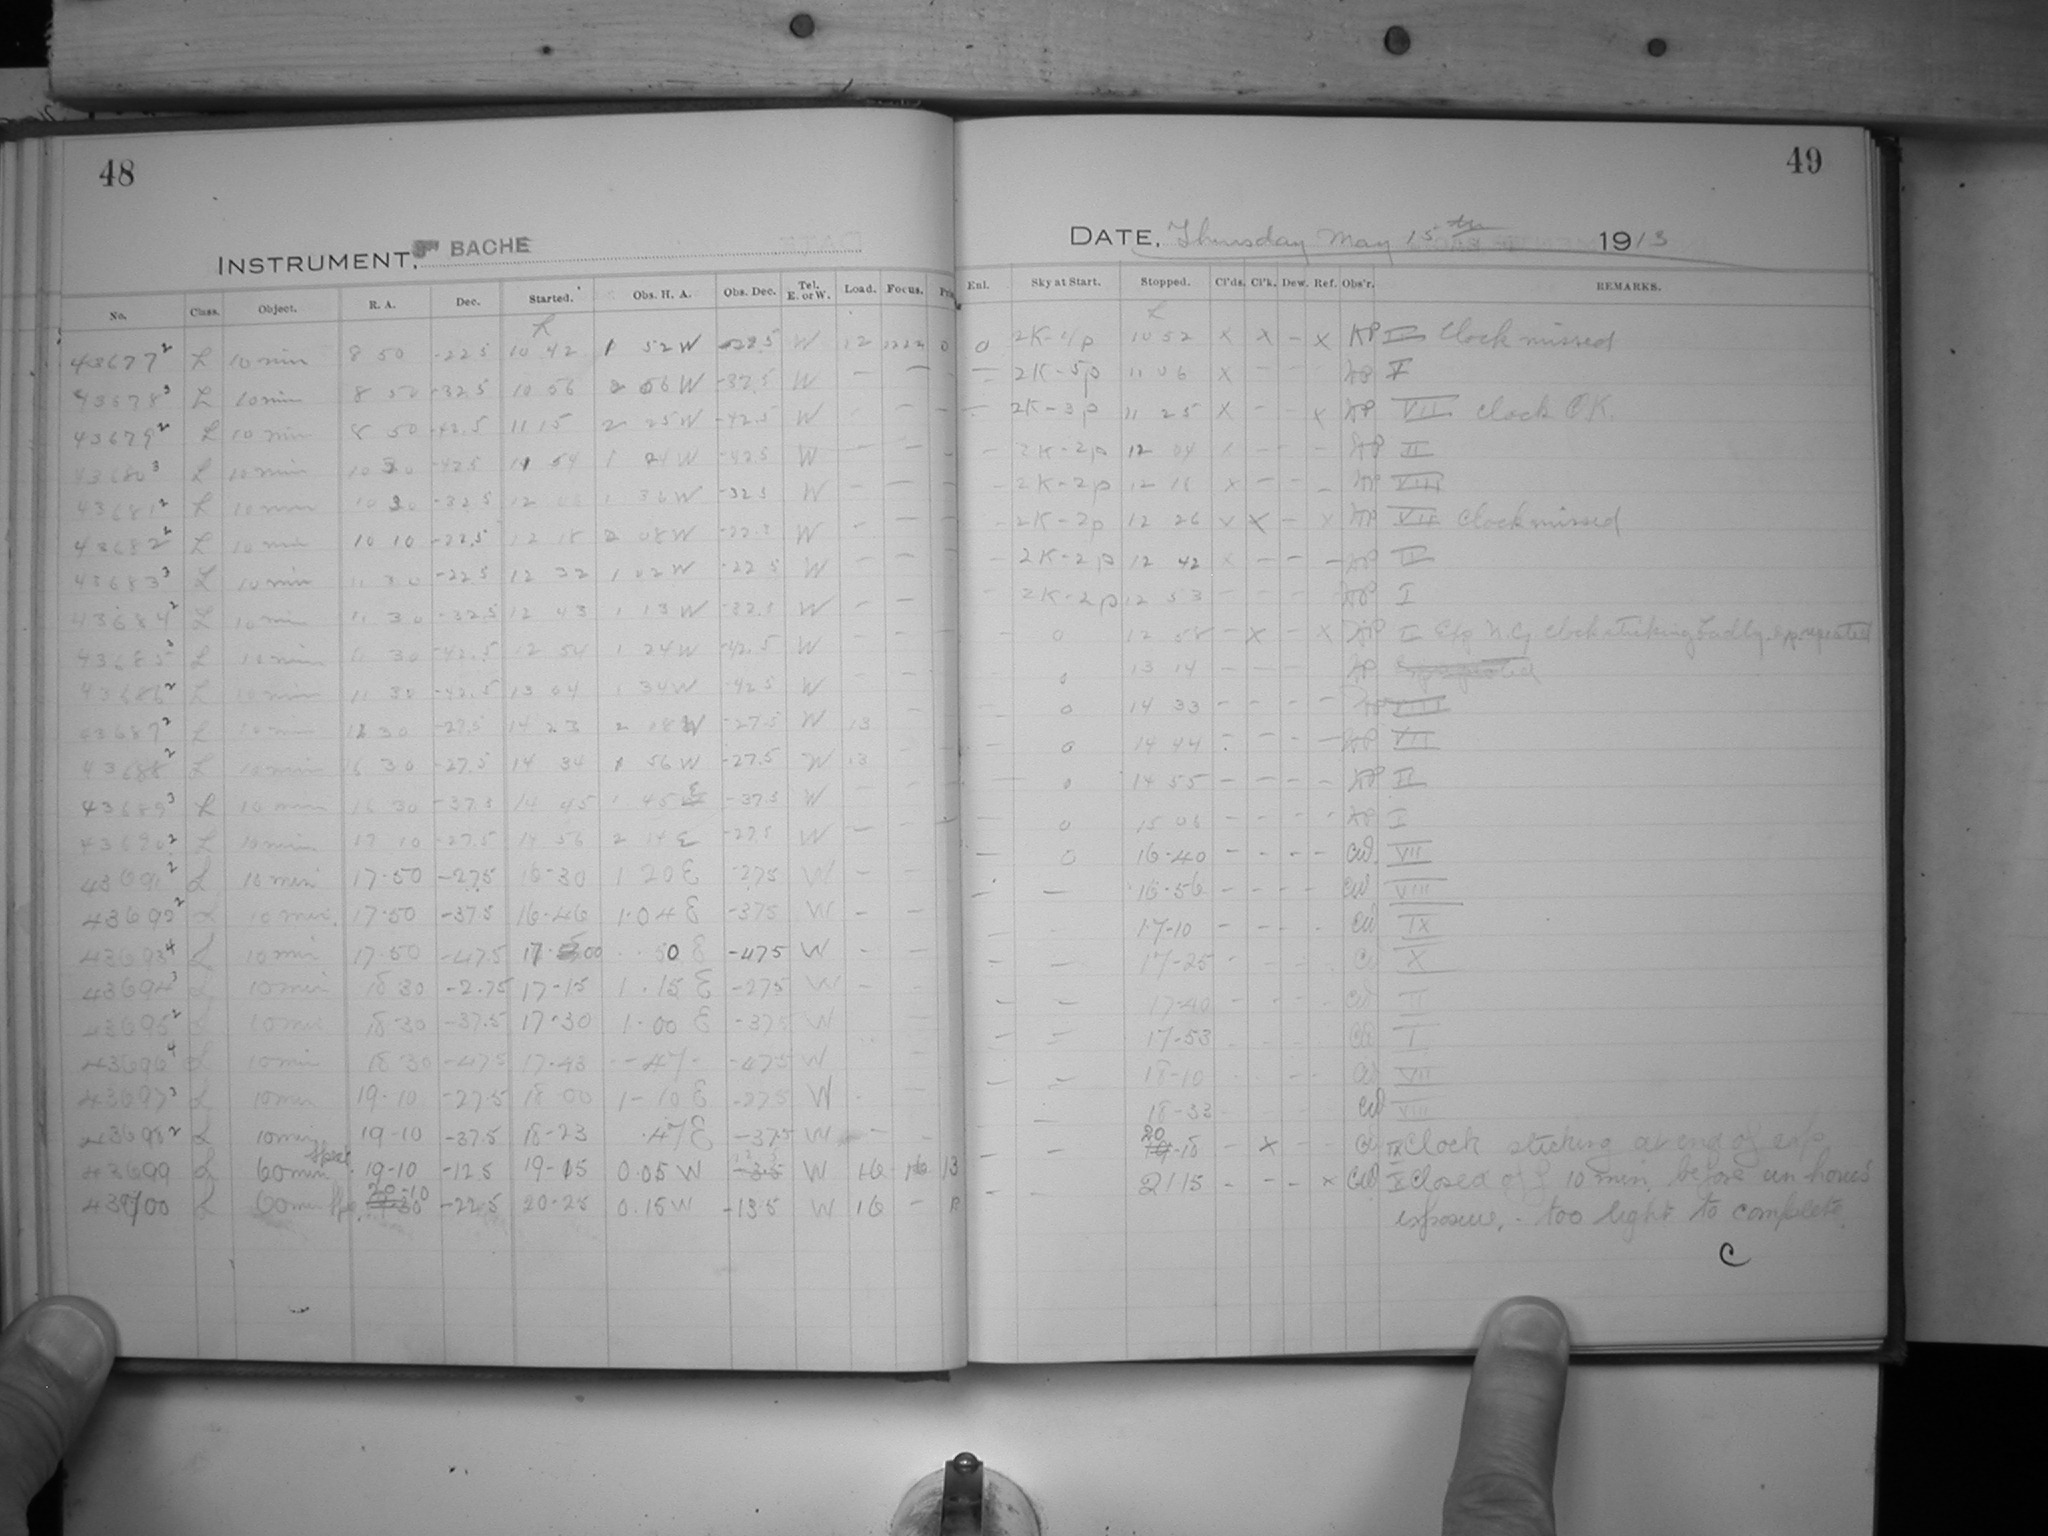 48
INSTRUMENT, 8" BACHE
No. Class. Object. R. A. Dec. Started. Obs. H. A. Obs. Dec. Tel. E. or W. Load. Focus.
43677 2 L 10 min 8 50 -22.5 10 42 1 52 W -22.5 W 12 0
43678 3 L 10 min 8 50 -32.5 10 56 2 06 W -32.5 W - -
43679 2 L 10 min 8 50 -42.5 11 15 2 25 W -42.5 W - -
43680 3 L 10 min -42.5 11 54 1 24 W -42.5 W - -
43681 2 L 10 min -32.5 12 1 36 W -32.5 W - -
43682 2 L 10 min 10 10 -22.5 12 18 2 08 W -22.5 W - -
43683 3 L 10 min 11 30 -22.5 12 32 1 02 W -22.5 W - -
43684 2 L 10 min 11 30 -32.5 12 43 1 13 W -32.5 W - -
43685 2 L 10 min 11 30 -42.5 12 54 1 24 W -42.5 W - -
43686 2 L 10 min 11 30 -42.5 13 04 1 34 W -42.5 W - -
43687 2 L 10 min 30 -27.5 14 23 2 08 W -27.5 W 13
43688 2 L 10 min 16 30 -27.5 14 34 1 56 W -27.5 W 13
43689 3 L 10 min 16 30 -37.5 14 45 1 45 E -37.5 W - -
43690 2 L 10 min 17 10 -27.5 14 56 2 14 E -27.5 W - -
43691 2 L 10 min 17.50 -27.5 16-30 1 20 E -27.5 W - -
43692 2 L 10 min. 17.50 -37.5 16-46 1.04 E -37.5 W - -
43693 4 L 10 min 17.50 -47.5 17 00 50 E -47.5 W - -
43694 3 L 10 min 18 30 -2.75 17-15 1.15 E -27.5 W - -
43695 2 L 10 min 18-30 -37.5 17-30 1.00 E -37.5 W
43696 4 L 10 min 18 30 -47.5 17-43 --47- -47.5 W
43697 3 L 10 min 19-10 -27.5 18 00 1-10 E -27.5 W
43698 2 L 10 min 19-10 -37.5 18-23 .47 E -37.5 W
43699 L 60 min 19-10 -12.5 19-15 0.05 W W 16 16 13
43700 L 60 min 20-10 -22.5 20-25 0.15 W -13.5 W 16 -
49
DATE, Thursday May 15th 1913
Enl. Sky at Start. Stopped. Cl'ds. Cl'k. Dew. Ref. Obs'r. REMARKS.
0 2K-4p 10 52 x x - x Clock missed
- 2K-5p 11 06 x - - - V
- 2K-3p 11 25 x - - x VII clock O.K.
- 2K-2p 12 04 - - - II
- 2K-2p 12 16 x - - - VIII
- 2K-2p 12 26 x x - x VII Clock missed
- 2K-2p 12 42 x - - - II
- 2K-2p 12 53 - - - - I
0 12 58 - x - x II Exp N.G. clock sticking badly exp repeated
0 13 14 - - - -
0 14 33 - - - -
0 14 44 - - - VII
0 14 55 - - - - II
0 15 06 - - - - I
0 16-40 - - - - CW VII
- - 16-56 - - - - CW VIII
- 17-10 - - - - CW IX
- - 17-25 X
- - 17-40 - - - - CW II
- - 17-53 CW I
- - 18-10 VII
- 18-33 CW VIII
- - 20-18 - x - - IX Clock sticking at end of exp
- - 2115 - - - x CW X Closed off 10 min. before an hours
exposure. - too light to complete
C